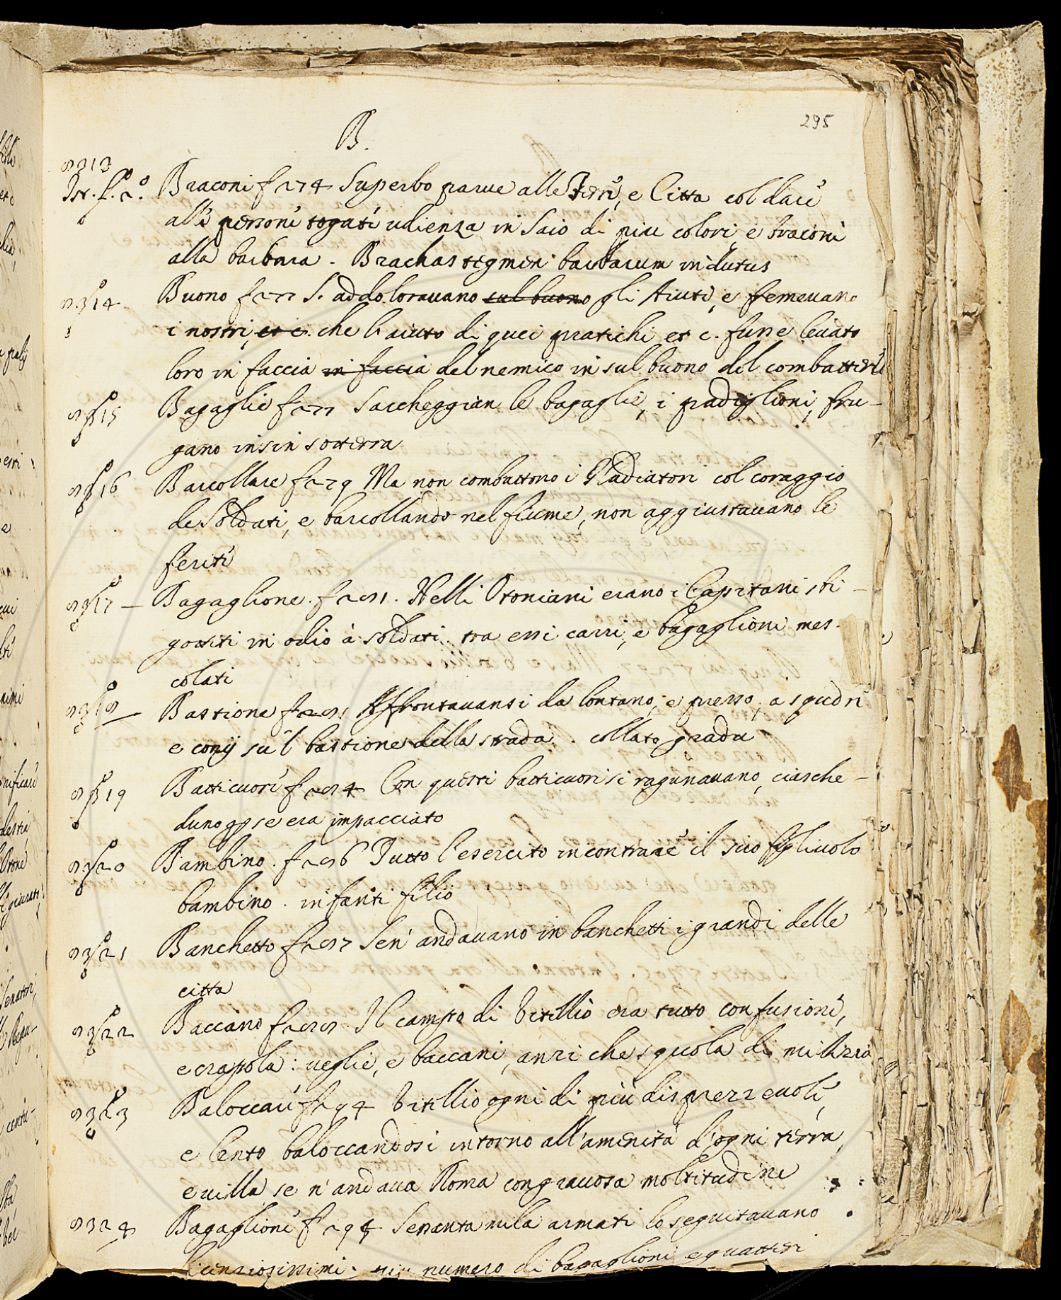 295
B.
Braconi f 274 Superbo parve alle Terre, e Citta col dare
alle persone togate udienza in Saio di piu colori, e braconi
alla barbara. Brachas tegmen barbarum indutus
Buono f 277 S. addoloravano sul buono gli Aiuti, e fremevano
i nostri, et c. che l'aiuto di quei pratichi, et c. fusse levato
loro in faccia in faccia del nemico in sul buono del combattere
15 Bagaglie f 277 Saccheggian le bagaglie, i padiglioni, fru-
gano insin sotterra
16 Barcollare f 279 Ma non combattono i Gladiatori col coraggio
de Soldati, e barcollando nel fiume, non aggiustavano le
ferite
17 Bagaglione. f 281. Nelli Otoniani erano i Capitani sbi-
gottiti in odio à soldati. tra essi carri, e bagaglioni mes-
colati
Bastione f 281 Affrontavansi da lontano, e presso, a squadre
e conij su'l bastione della strada. collato gradu
19 Batticuore f 284 Con questi batticuori si ragunavano, ciasche-
duno per se era impacciato
20 Bambino. f 286 Tutto l'esercito incontrare il suo figliuolo
bambino. infanti filio
21 Banchetto f 287 Sen'andavano in banchetti i grandi delle
citta
22 Baccano f 289 Il campo di Vitellio era tutto confusione,
e crapola: veglie, e baccani, anzi che squola di milizia
23 Baloccare f 294 Vitellio ogni di più disprezzevole,
e lento baloccandosi intorno all'amenità d'ogni terra,
e villa se n'andava Roma con gravosa moltitudine
24 Bagaglione f 294 Sessanta mila armati lo seguitavano
licenziosissimi. numero di bagaglioni